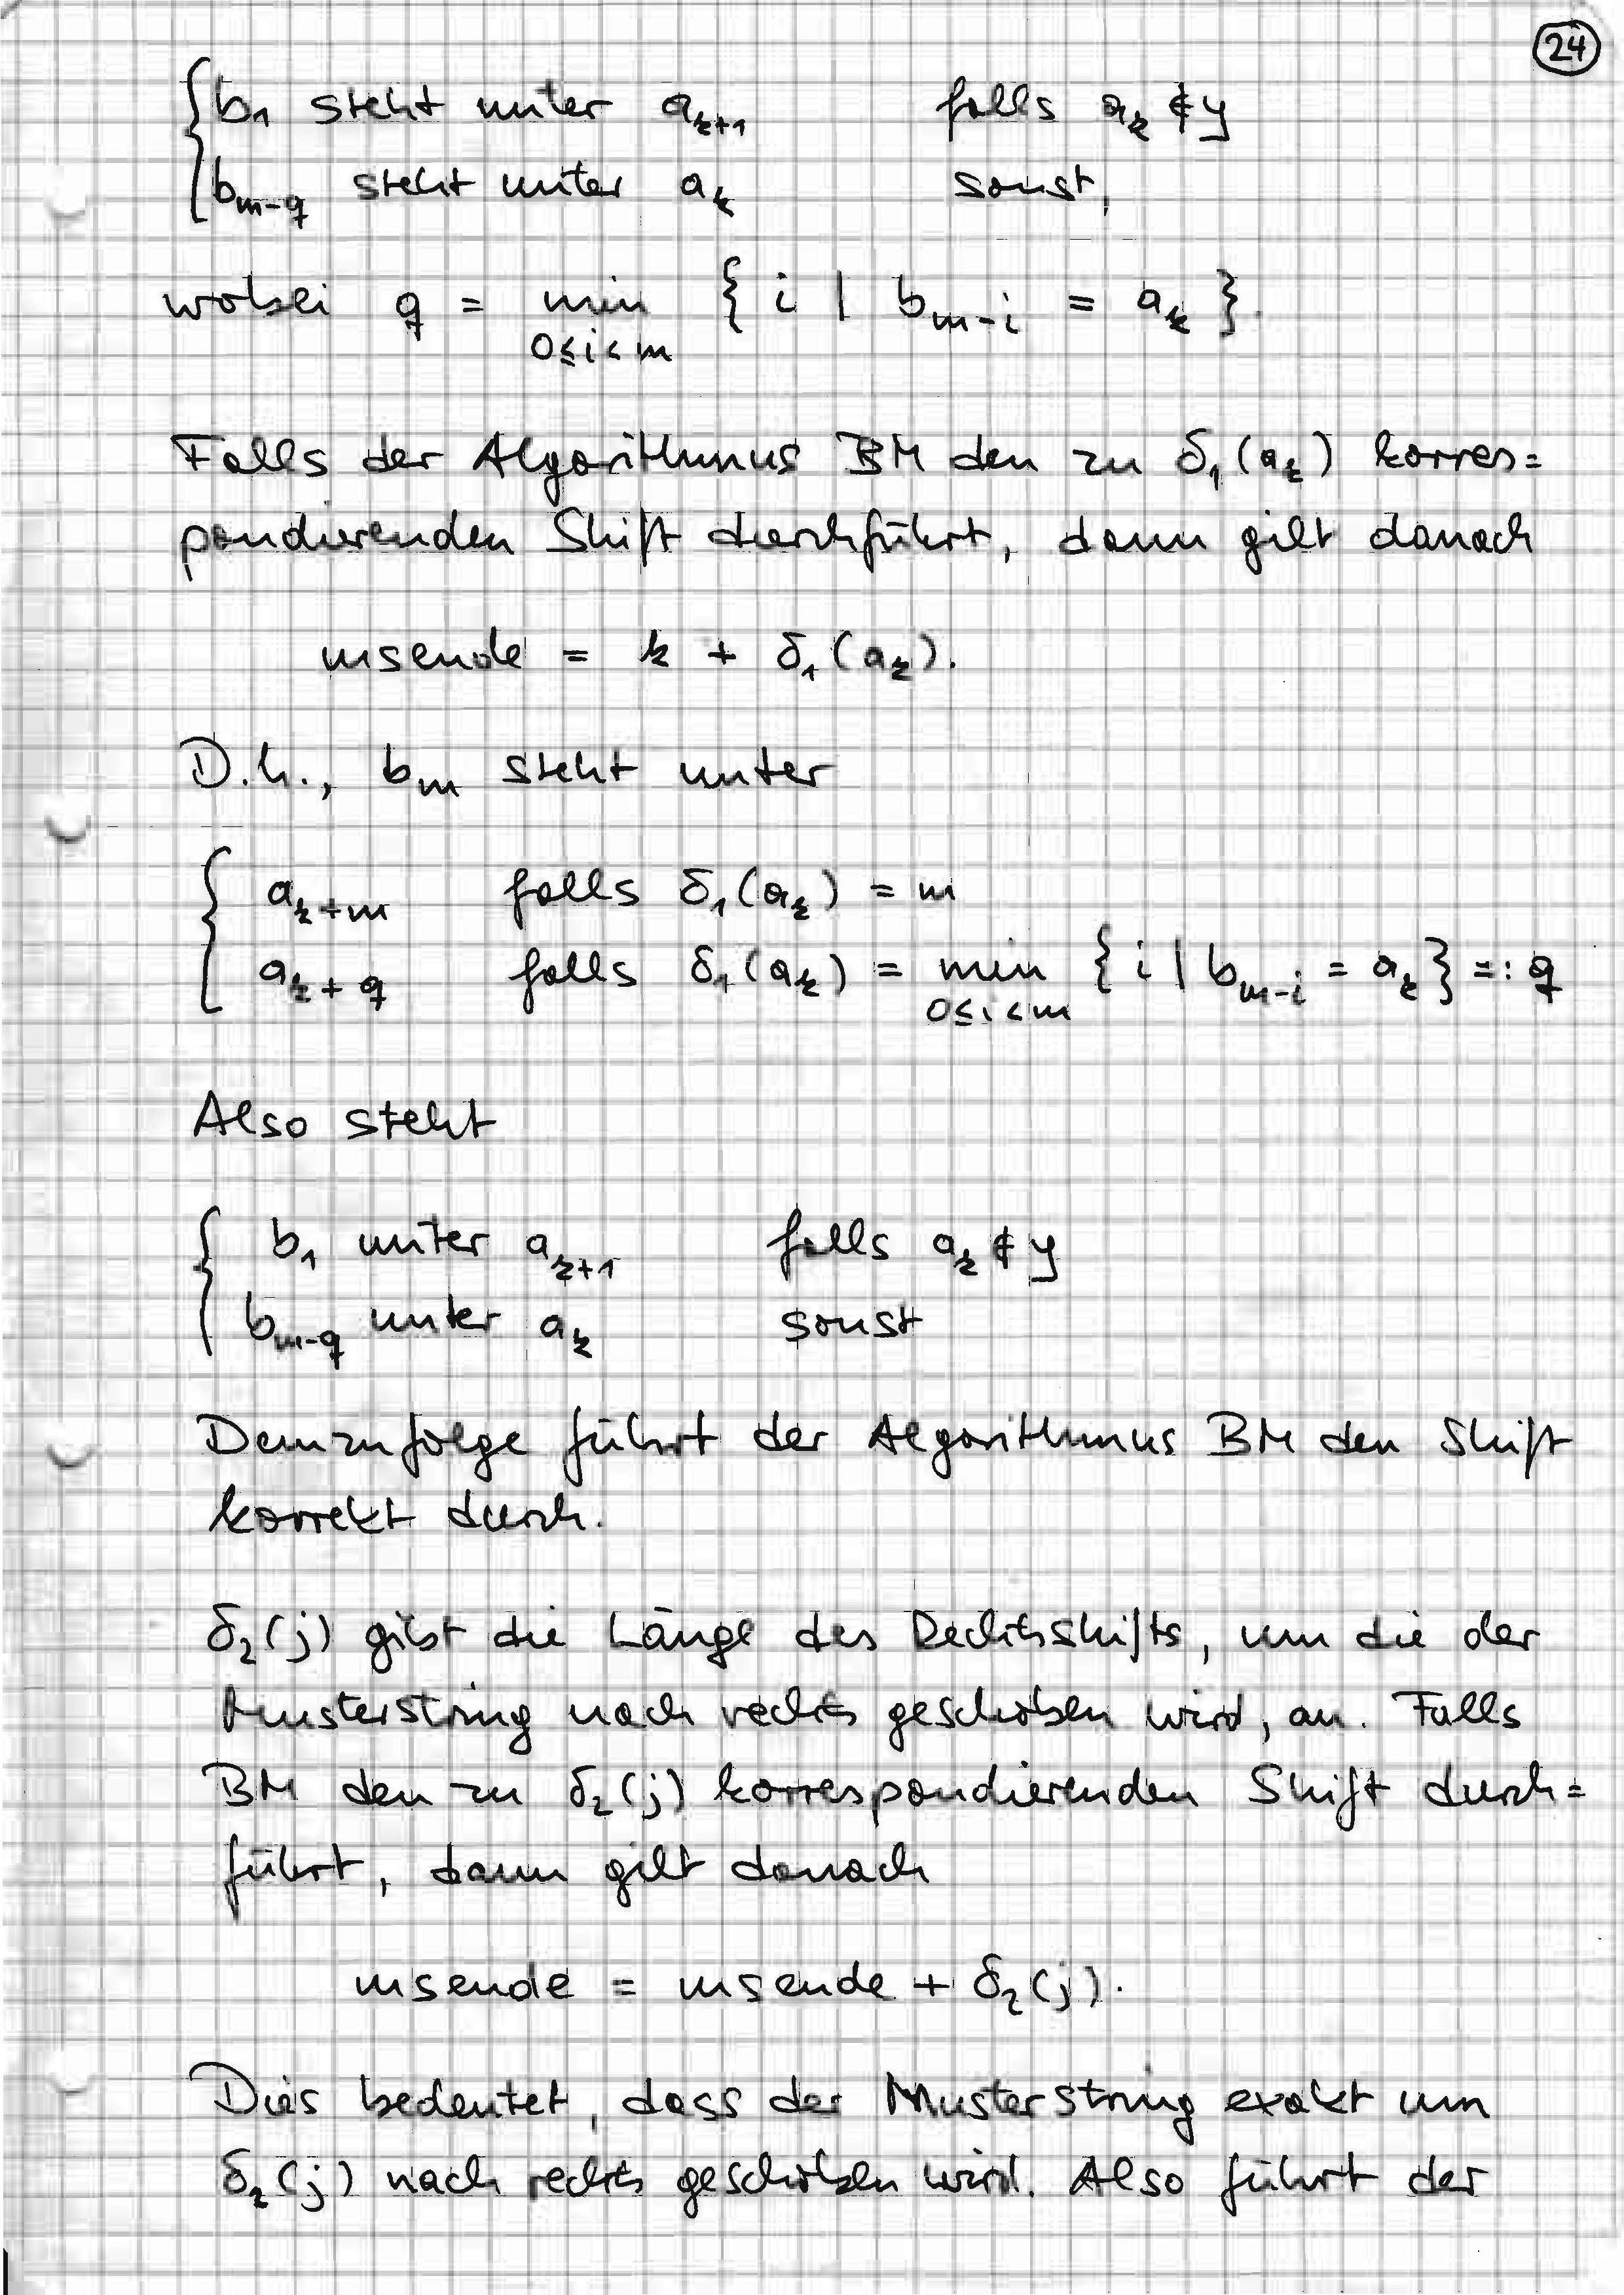 24
{ b₁ steht unter a_{k+1} falls a_k ∉ y
b_{m-q} steht unter a_k sonst,
wobei q = min { i | b_{m-i} = a_k }.
0≤i<m
Falls der Algorithmus BM den zu δ₁(a_k) korres=
pondierenden Shift durchführt, dann gilt danach
msende = k + δ₁(a_k).
D.h., b_m steht unter
{ a_{k+m} falls δ₁(a_k) = m
a_{k+q} falls δ₁(a_k) = min { i | b_{m-i} = a_k } =: q
0≤i<m
Also steht
{ b₁ unter a_{k+1} falls a_k ∉ y
b_{m-q} unter a_k sonst
Demzufolge führt der Algorithmus BM den Shift
korrekt durch.
δ₂(j) gibt die Länge des Rechtsshifts, um die der
Musterstring nach rechts geschoben wird, an. Falls
BM den zu δ₂(j) korrespondierenden Shift durch=
führt, dann gilt danach
msende = msende + δ₂(j).
Dies bedeutet, dass der Musterstring exakt um
δ₂(j) nach rechts geschoben wird. Also führt der